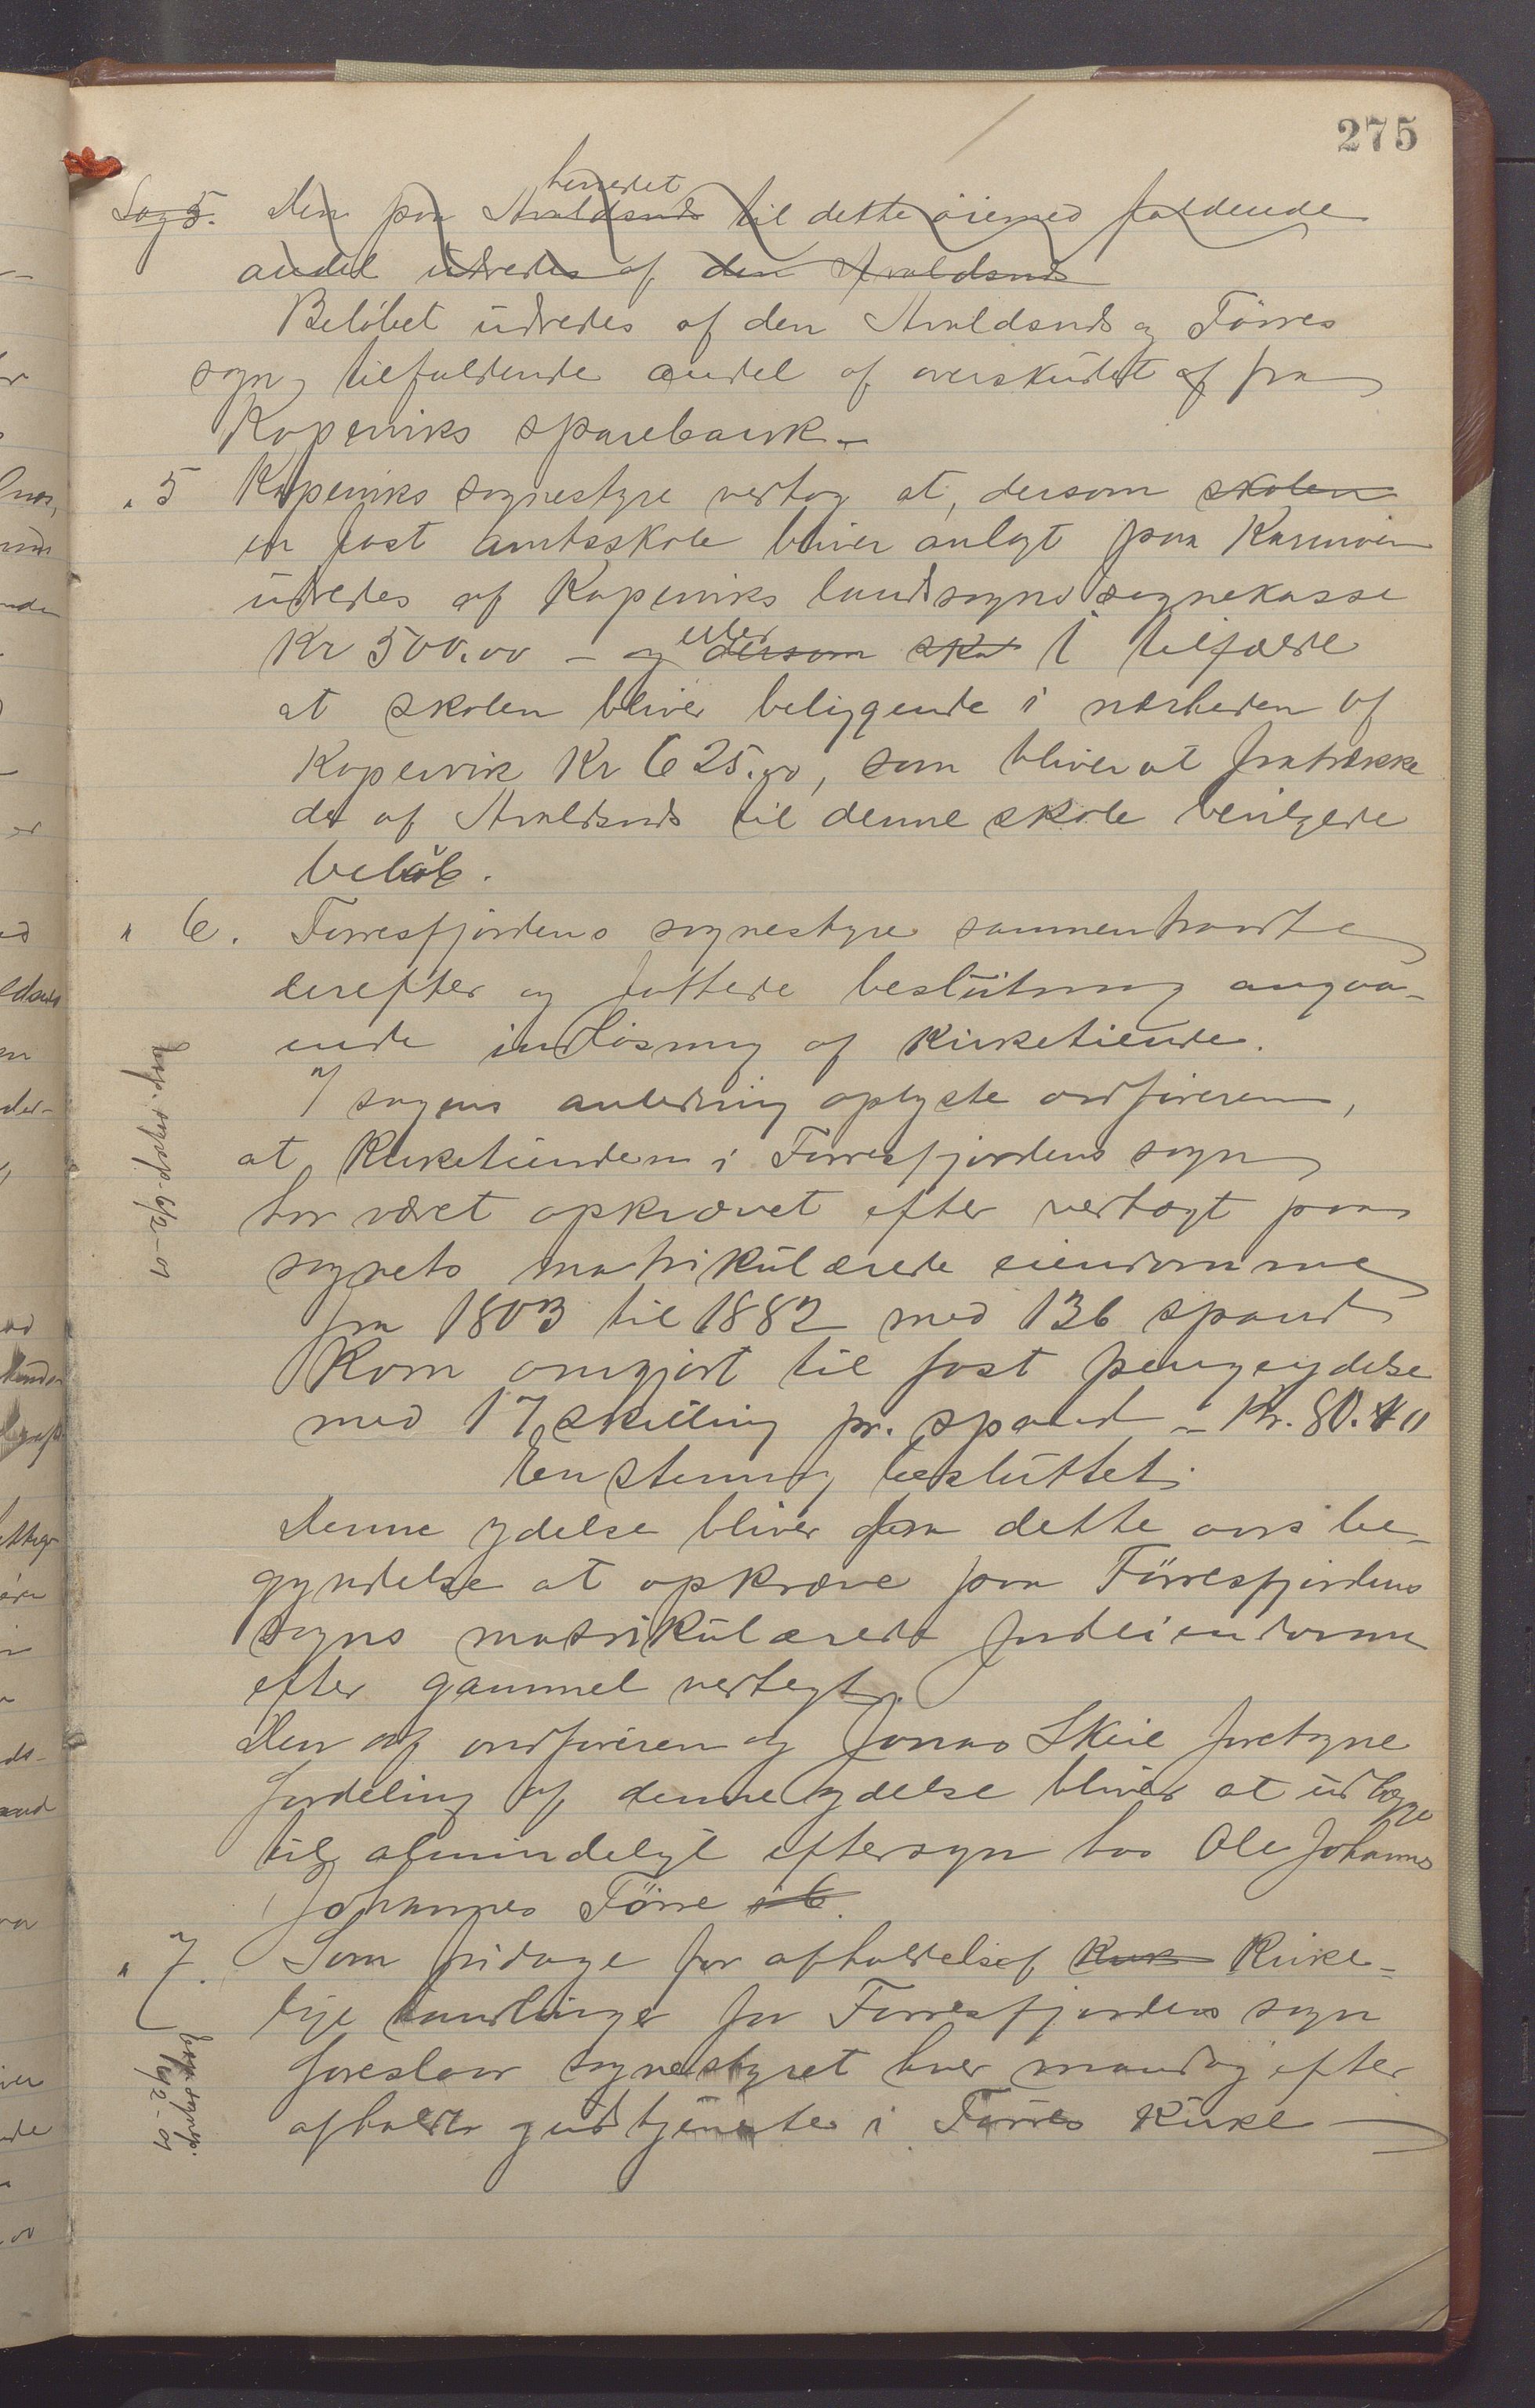 275
Sag 5. Den paa Avaldsnds herredet til dette øiemed faldende
andel udredes af den Avaldsnds
Beløbet udredes af den Avaldsnds og Törres
sogn tilfaldende andel af overskudet af fra
Koperviks sparebank –
" 5 Kopervics sognestyre vertog at, dersom skolen
en fast amtsskole bliver anlagt paa Karmøen
udredes af Koperviks landsogns sognekasse
Kr 500.00 – og dersom ska I tilfælde
at skolen bliver beliggende i nærheden af
Kopervik Kr 625.00, som bliver at fratrække
det af Avaldsnds til denne skole bevilgede
beløb.
" 6. Torresfjordens sognestyre sammentraadte
derefter og fattede beslutning angaa-
ende indløsning af Kirketiende.
I sagens anledning oplyste ordføreren,
at Kirketienden i Torresfjordens sogn
har været opkrævet efter vertægt paa
sognets matrikulærede eiendomme
fra 1803 til 1882 med 136 spand
Korn omgjort til fast pengeydelse
med 17 skilling pr. spand – Kr. 80.40
Enstemig besluttet:
Denne ydelse bliver fra dette aars be-
gyndelse at opkræve paa Törresfjordens
sogns matrikulærede Jordeiendomme
efter gammel vertegt.
Den af ordføreren og Jonas Skeie foretagne
fordeling af denne ydelse bliver at udlægge
til almindeligt eftersyn hos Ole Johannes
Johannes Törre
" 7. Som fridage for afholdelse af Kirke-
lige handlinger for Torresfjordens sogn
foreslaar sognestyret hver mandag efter
afholdt gudstjeneste i Törres Kirke —